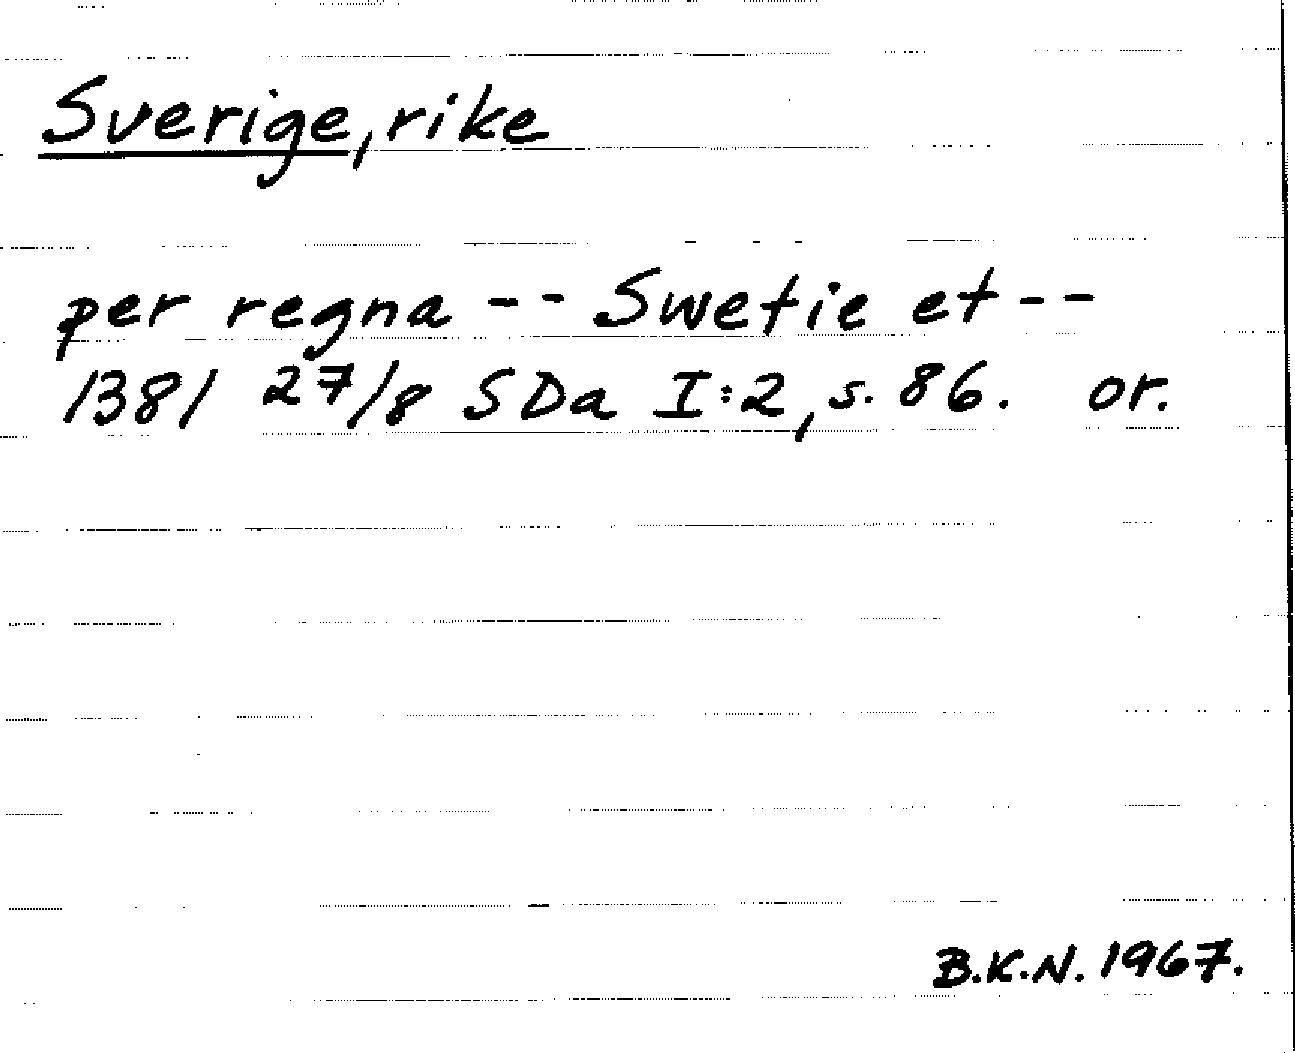 Sverige, rike
per regna -- Swetie et --
1381 27/8 SDa I:2, s. 86. or.
B.K.N. 1967.